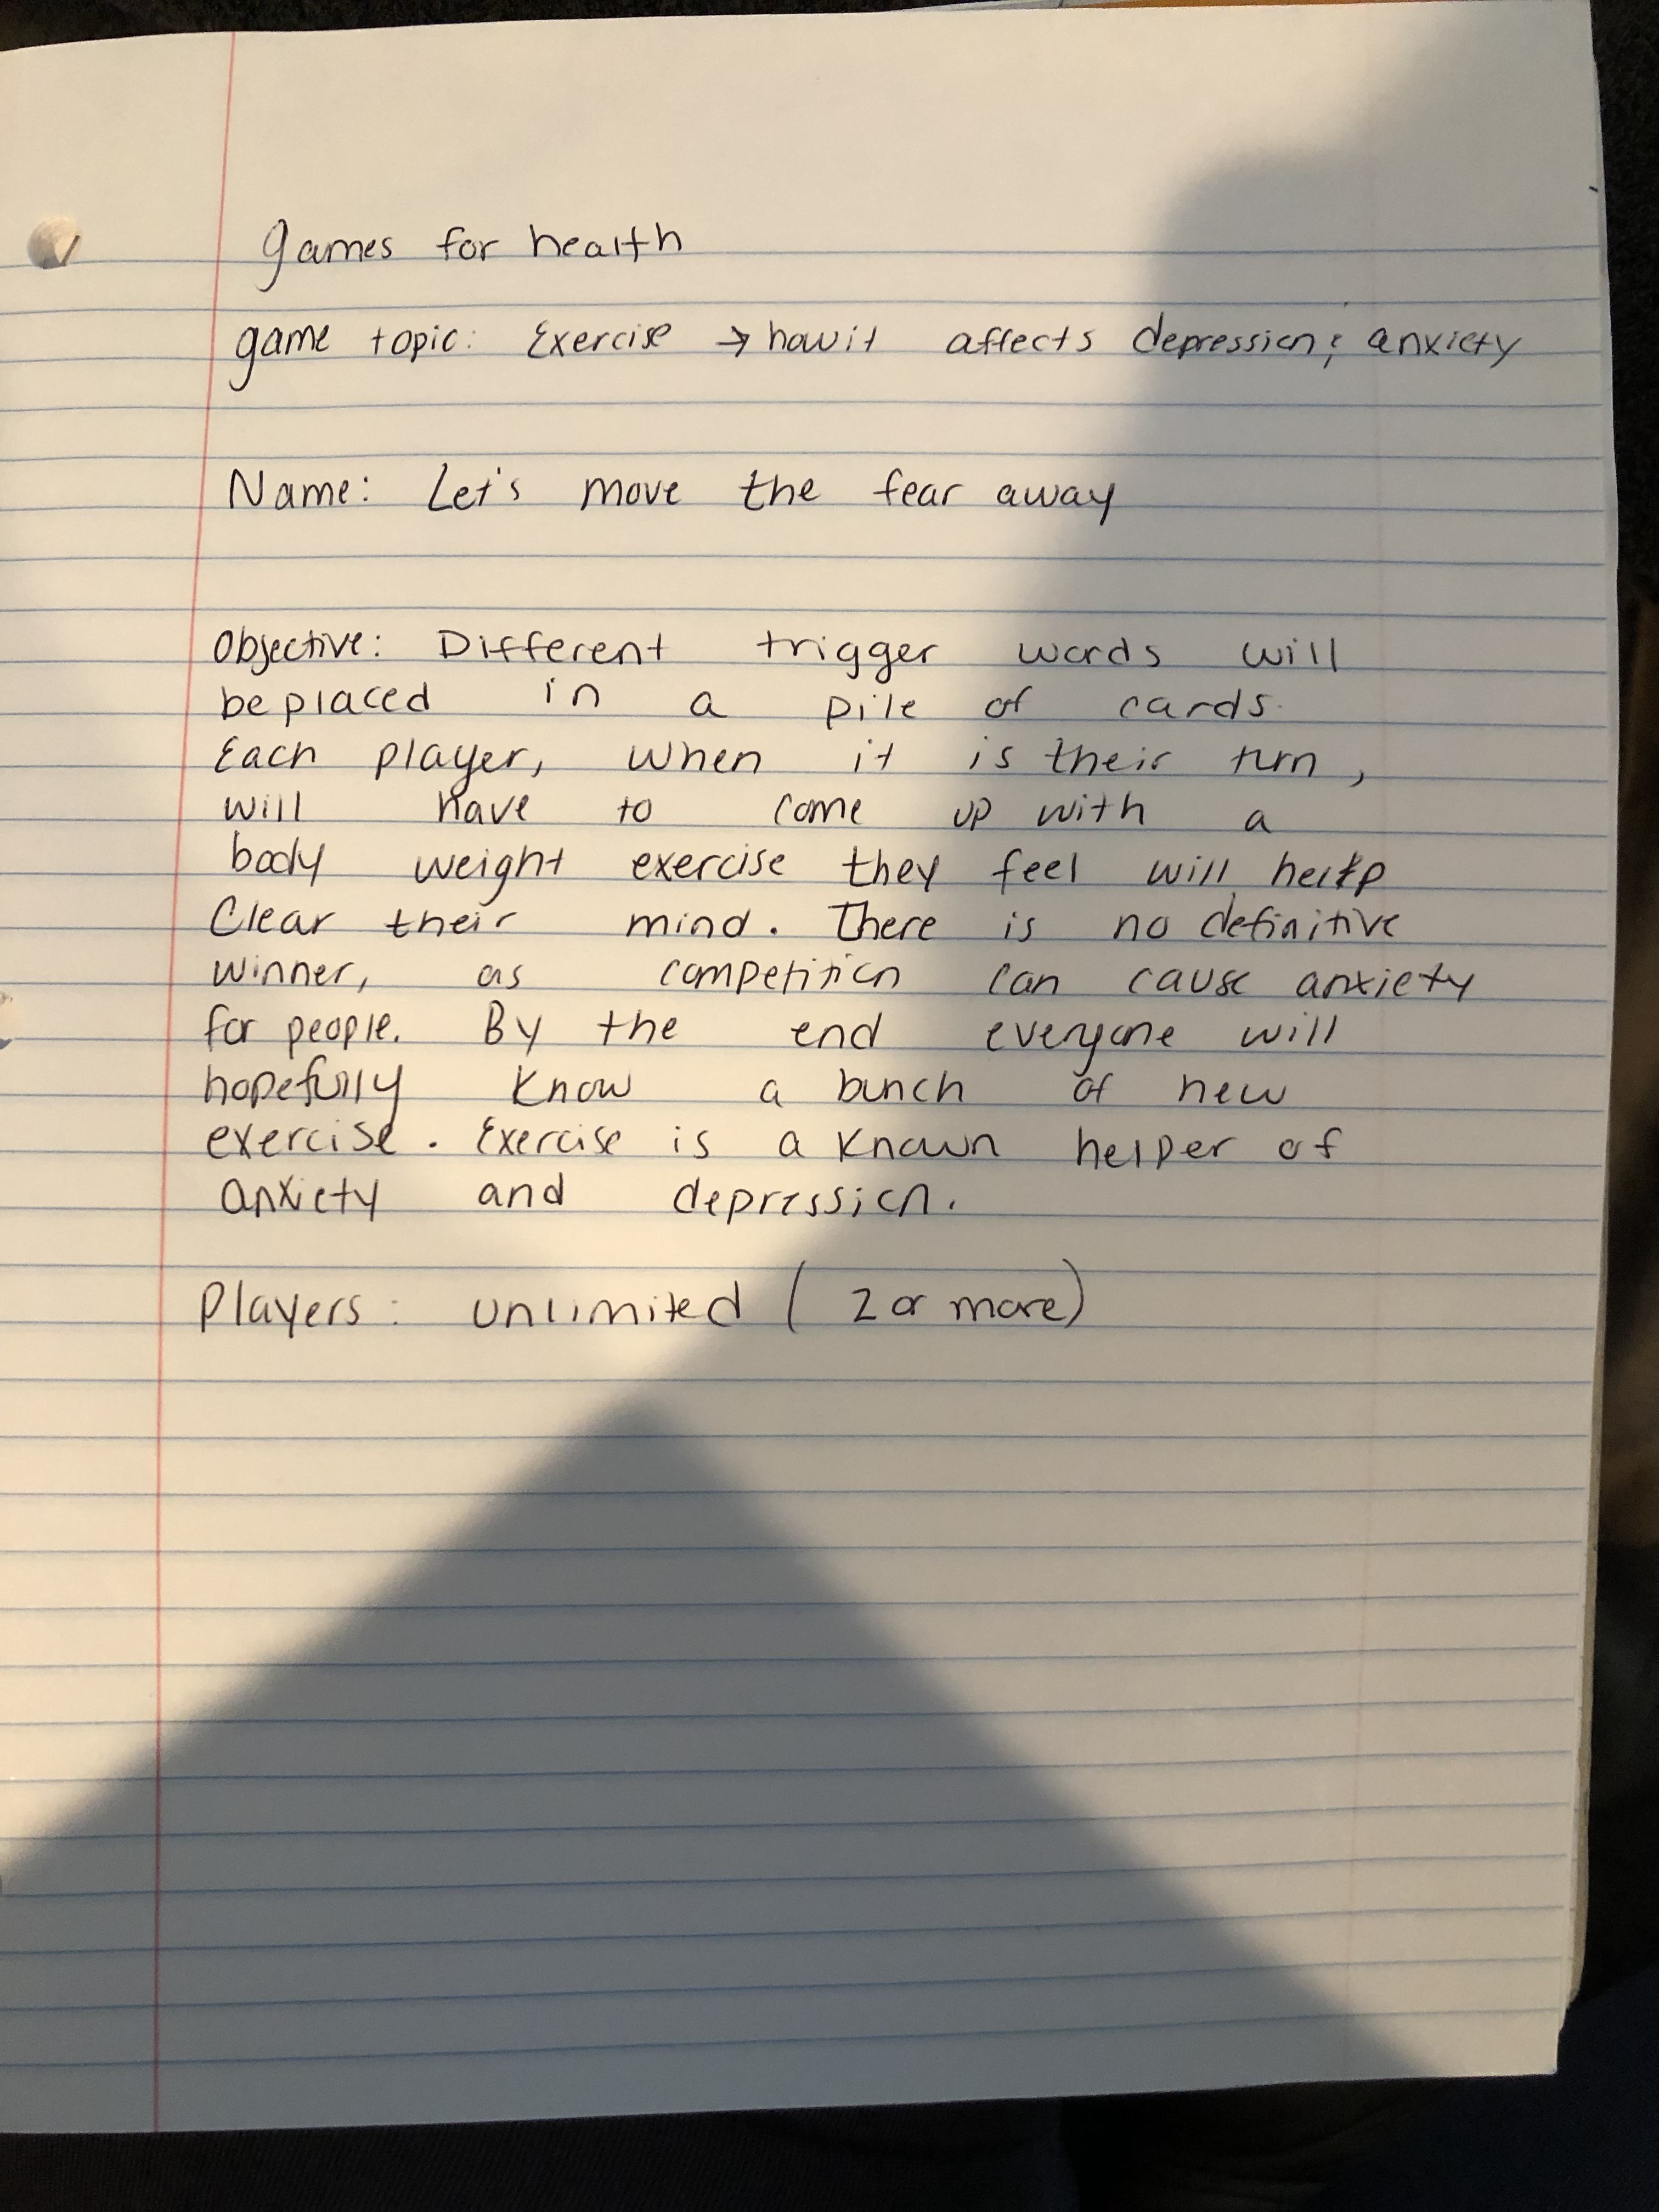 games for health
game topic: Exercise → how it affects depression & anxiety
Name: Let's move the fear away
Objective: Different trigger words will
be placed in a pile of cards.
Each player, when it is their turn,
will have to come up with a
body weight exercise they feel will help
Clear their mind. There is no definitive
winner, as competition can cause anxiety
for people. By the end everyone will
hopefully know a bunch of new
exercise. Exercise is a known helper of
anxiety and depression.
Players: unlimited (2 or more)